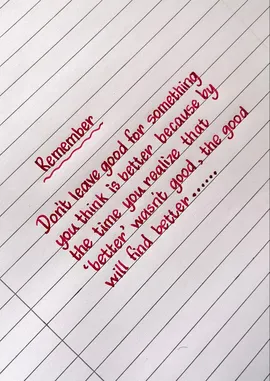 Remember
Don't leave good for something
you think is better because by
the time you realize that
'better' wasn't good, the good
will find better ......